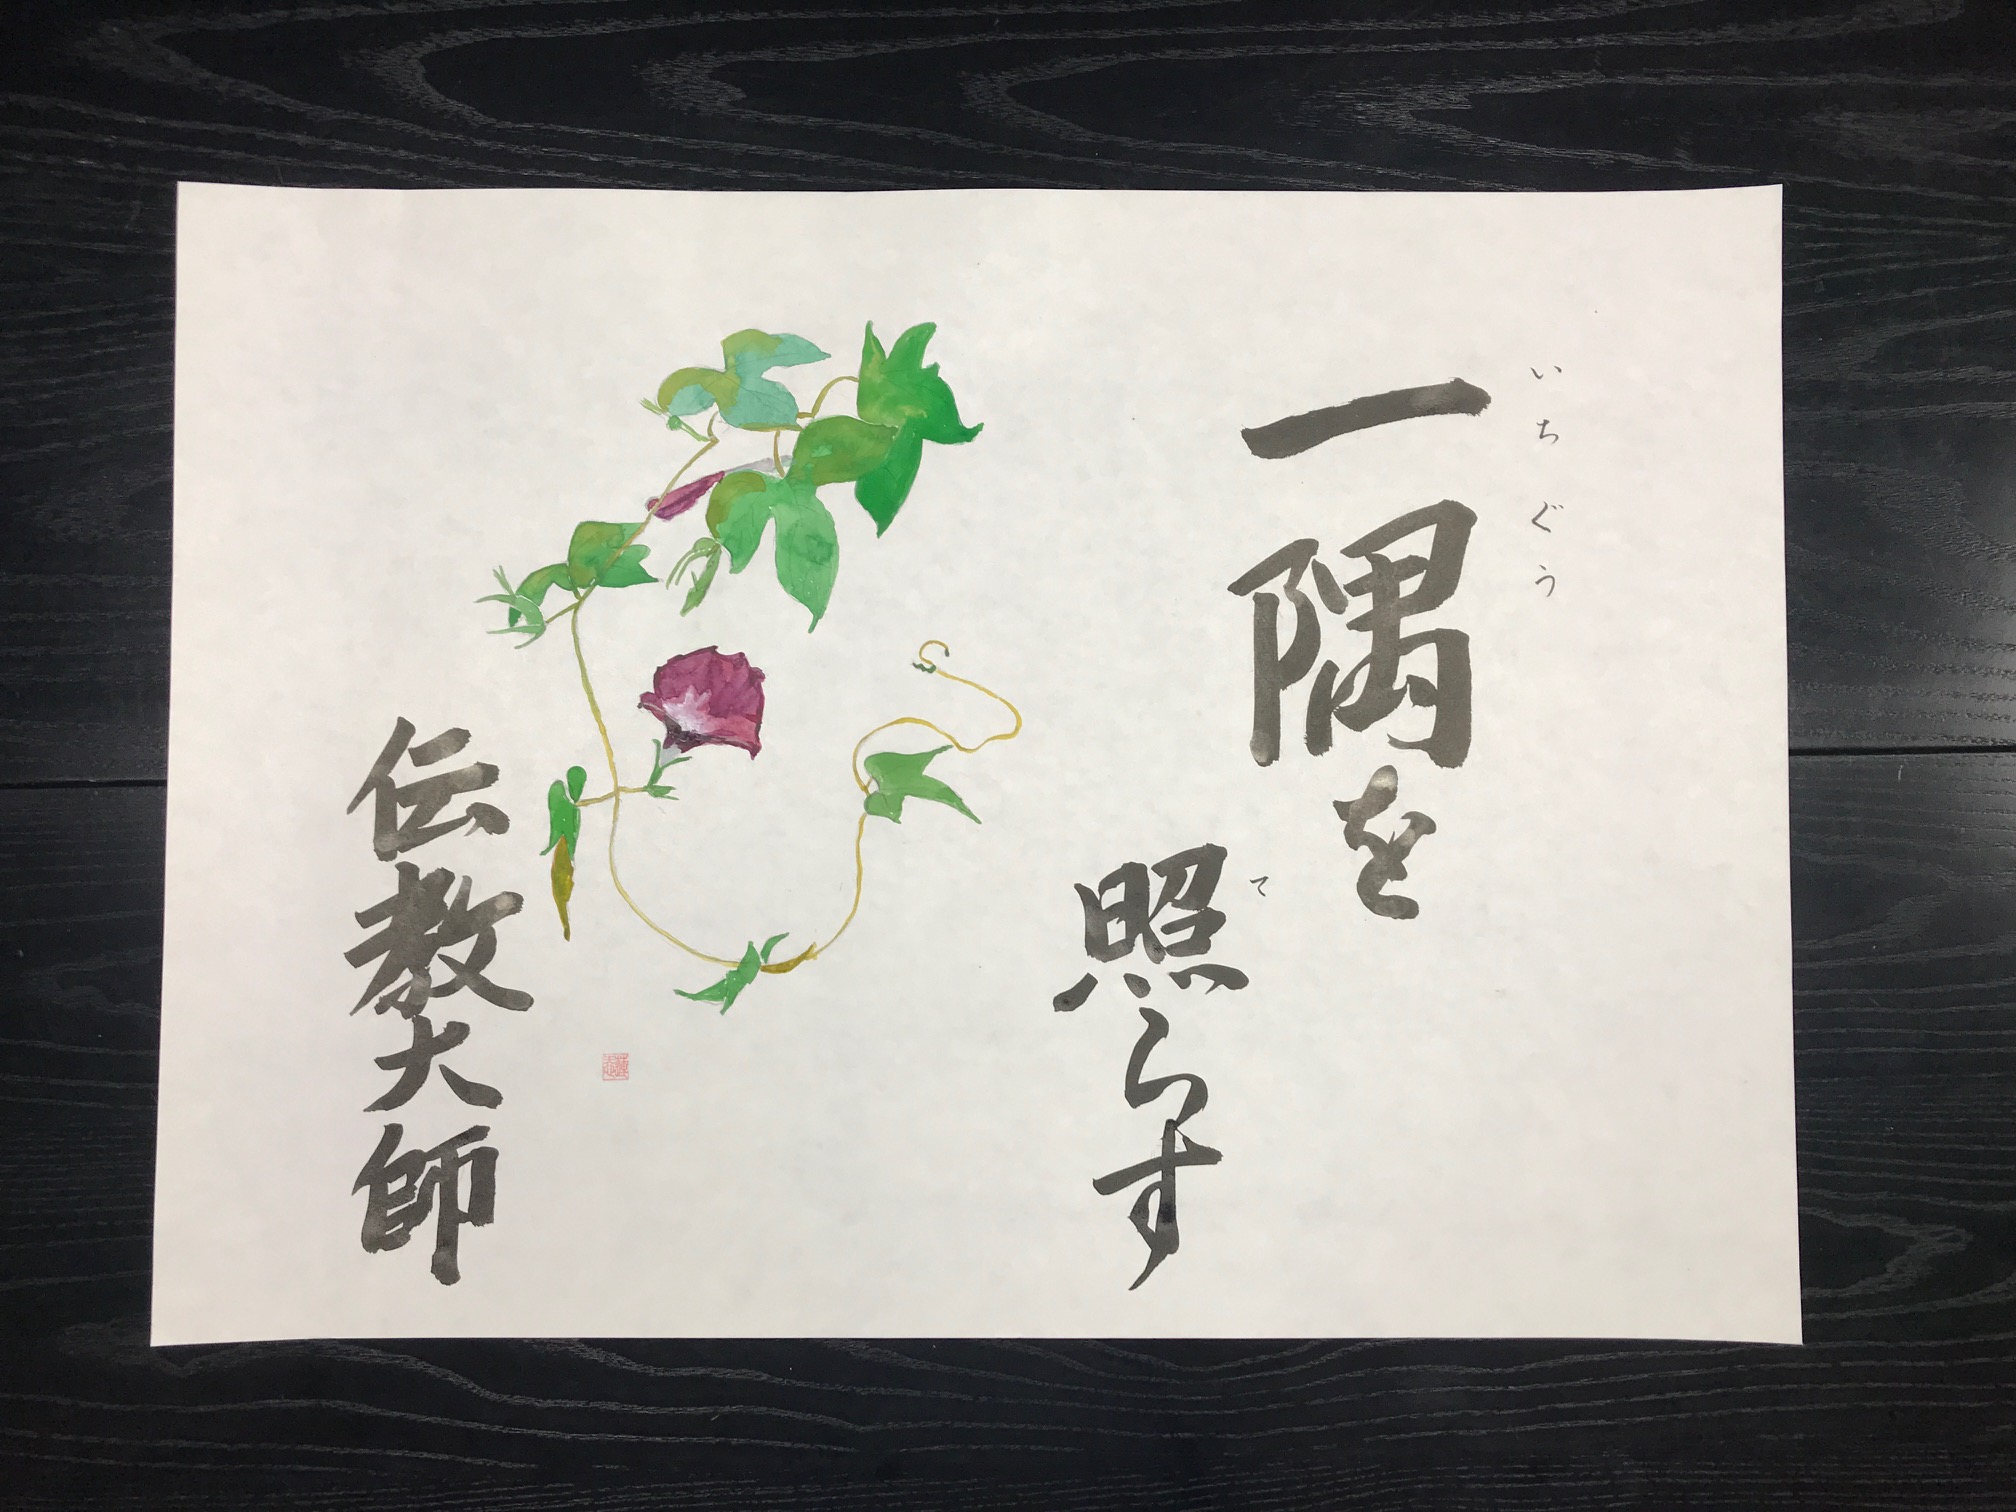 いちぐう
一隅を
て
照らす
伝教大師